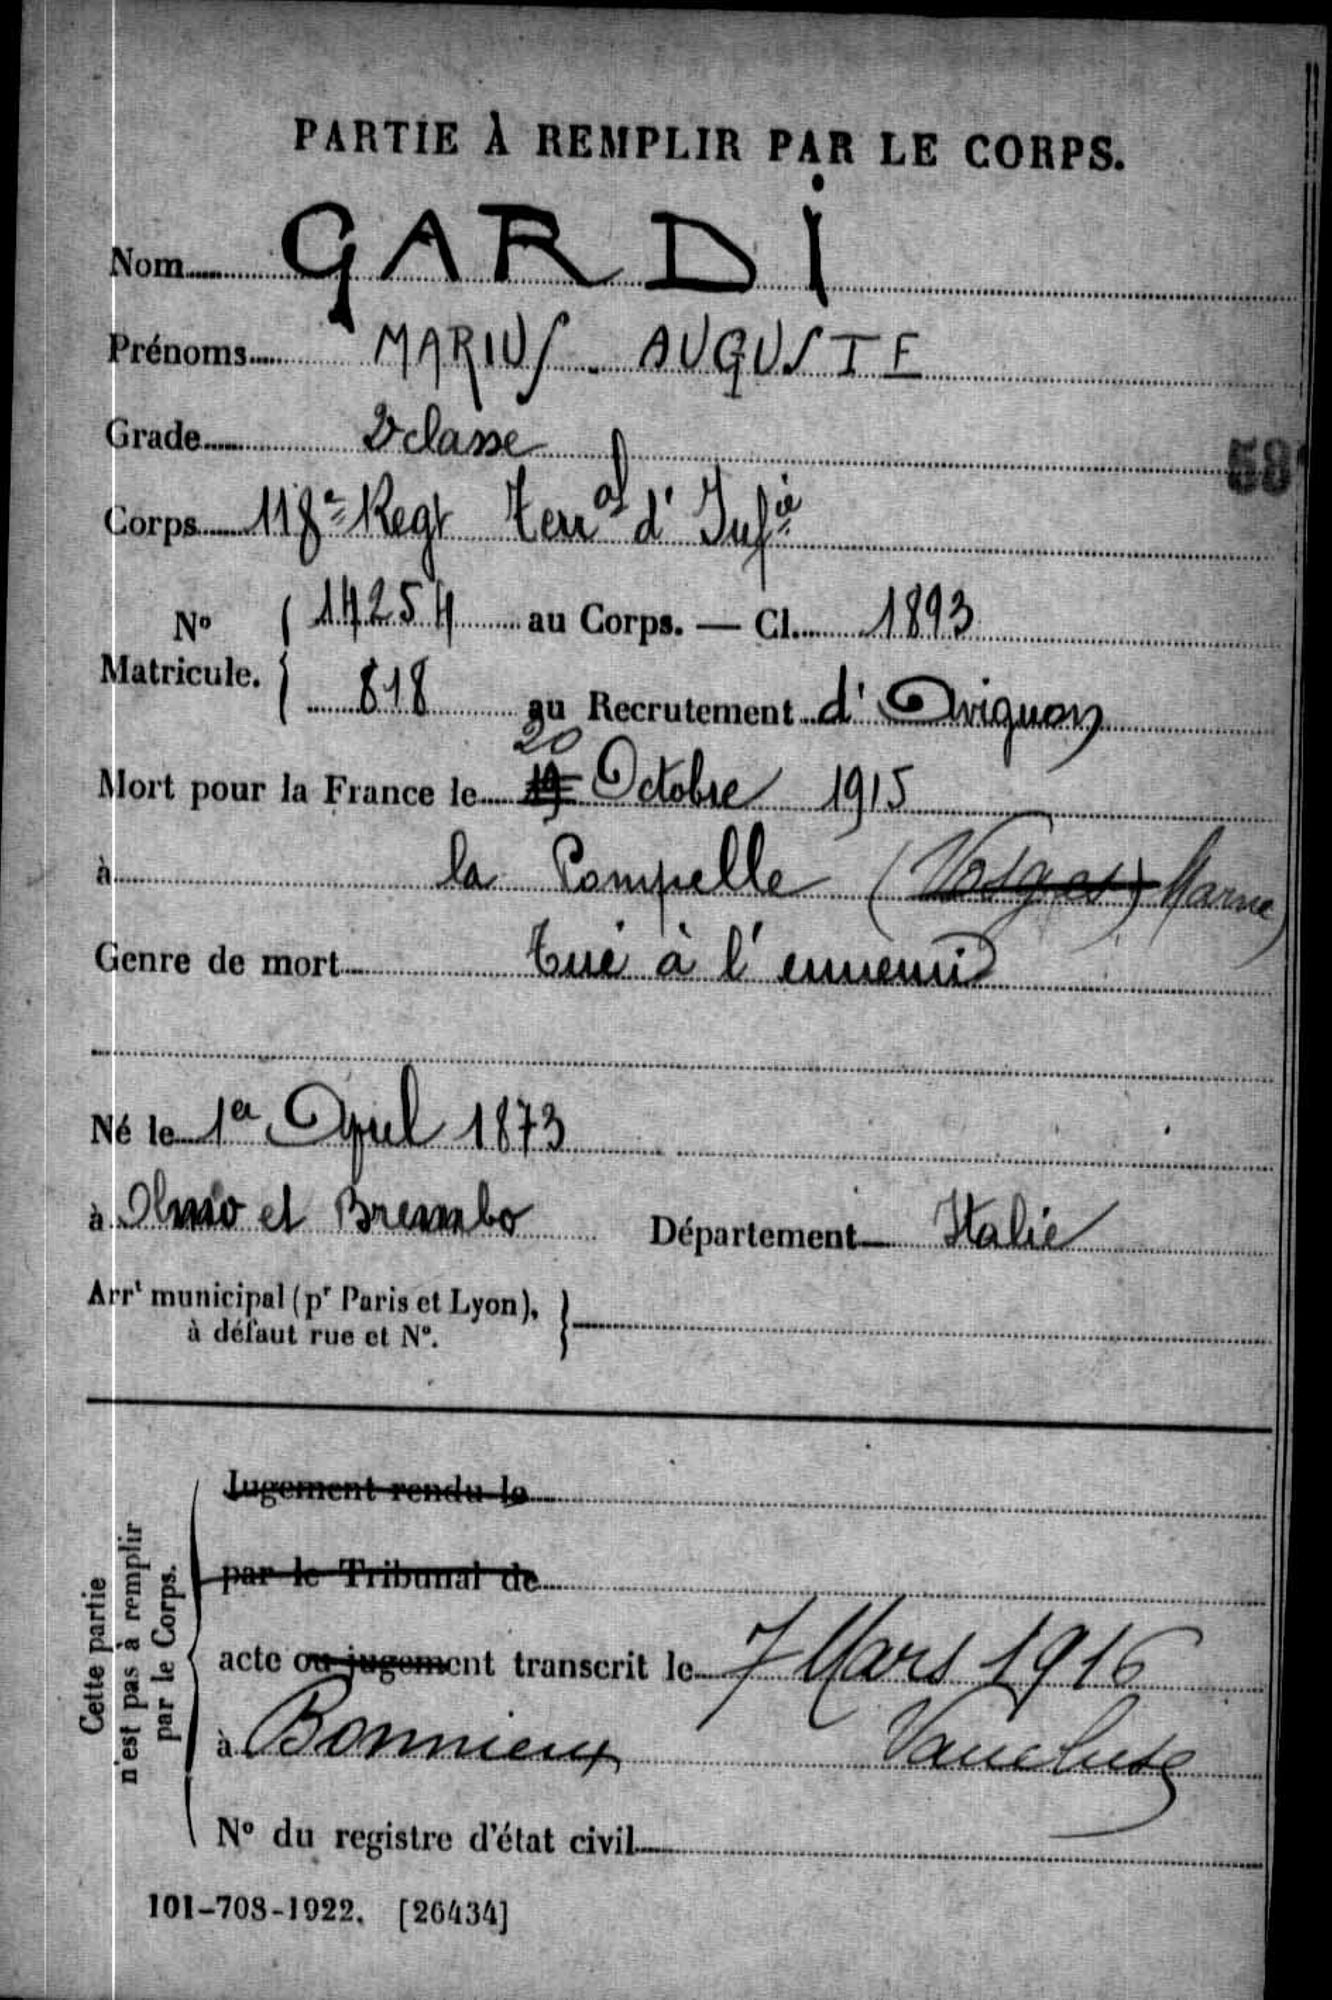 PARTIE À REMPLIR PAR LE CORPS.
Nom GARDI
Prénoms MARIUS - AUGUSTE
Grade 2e classe
58
Corps 118e Regt Terral d'Infie
No Matricule. { 14254 au Corps. — Cl. 1893
818 au Recrutement d'Avignon
20
Mort pour la France le 19 Octobre 1915
à la Pompelle (Vosges) Marne)
Genre de mort Tué à l'ennemi
Né le 1er Avril 1873
à Olmo et Brembo Département Italie
Arrt municipal (pr Paris et Lyon),
à défaut rue et No.
Cette partie
n'est pas à remplir
par le Corps.
Jugement rendu le
par le Tribunal de
acte ou jugement transcrit le 7 Mars 1916
à Bonnieux Vaucluse
No du registre d'état civil
101-708-1922. [26434]